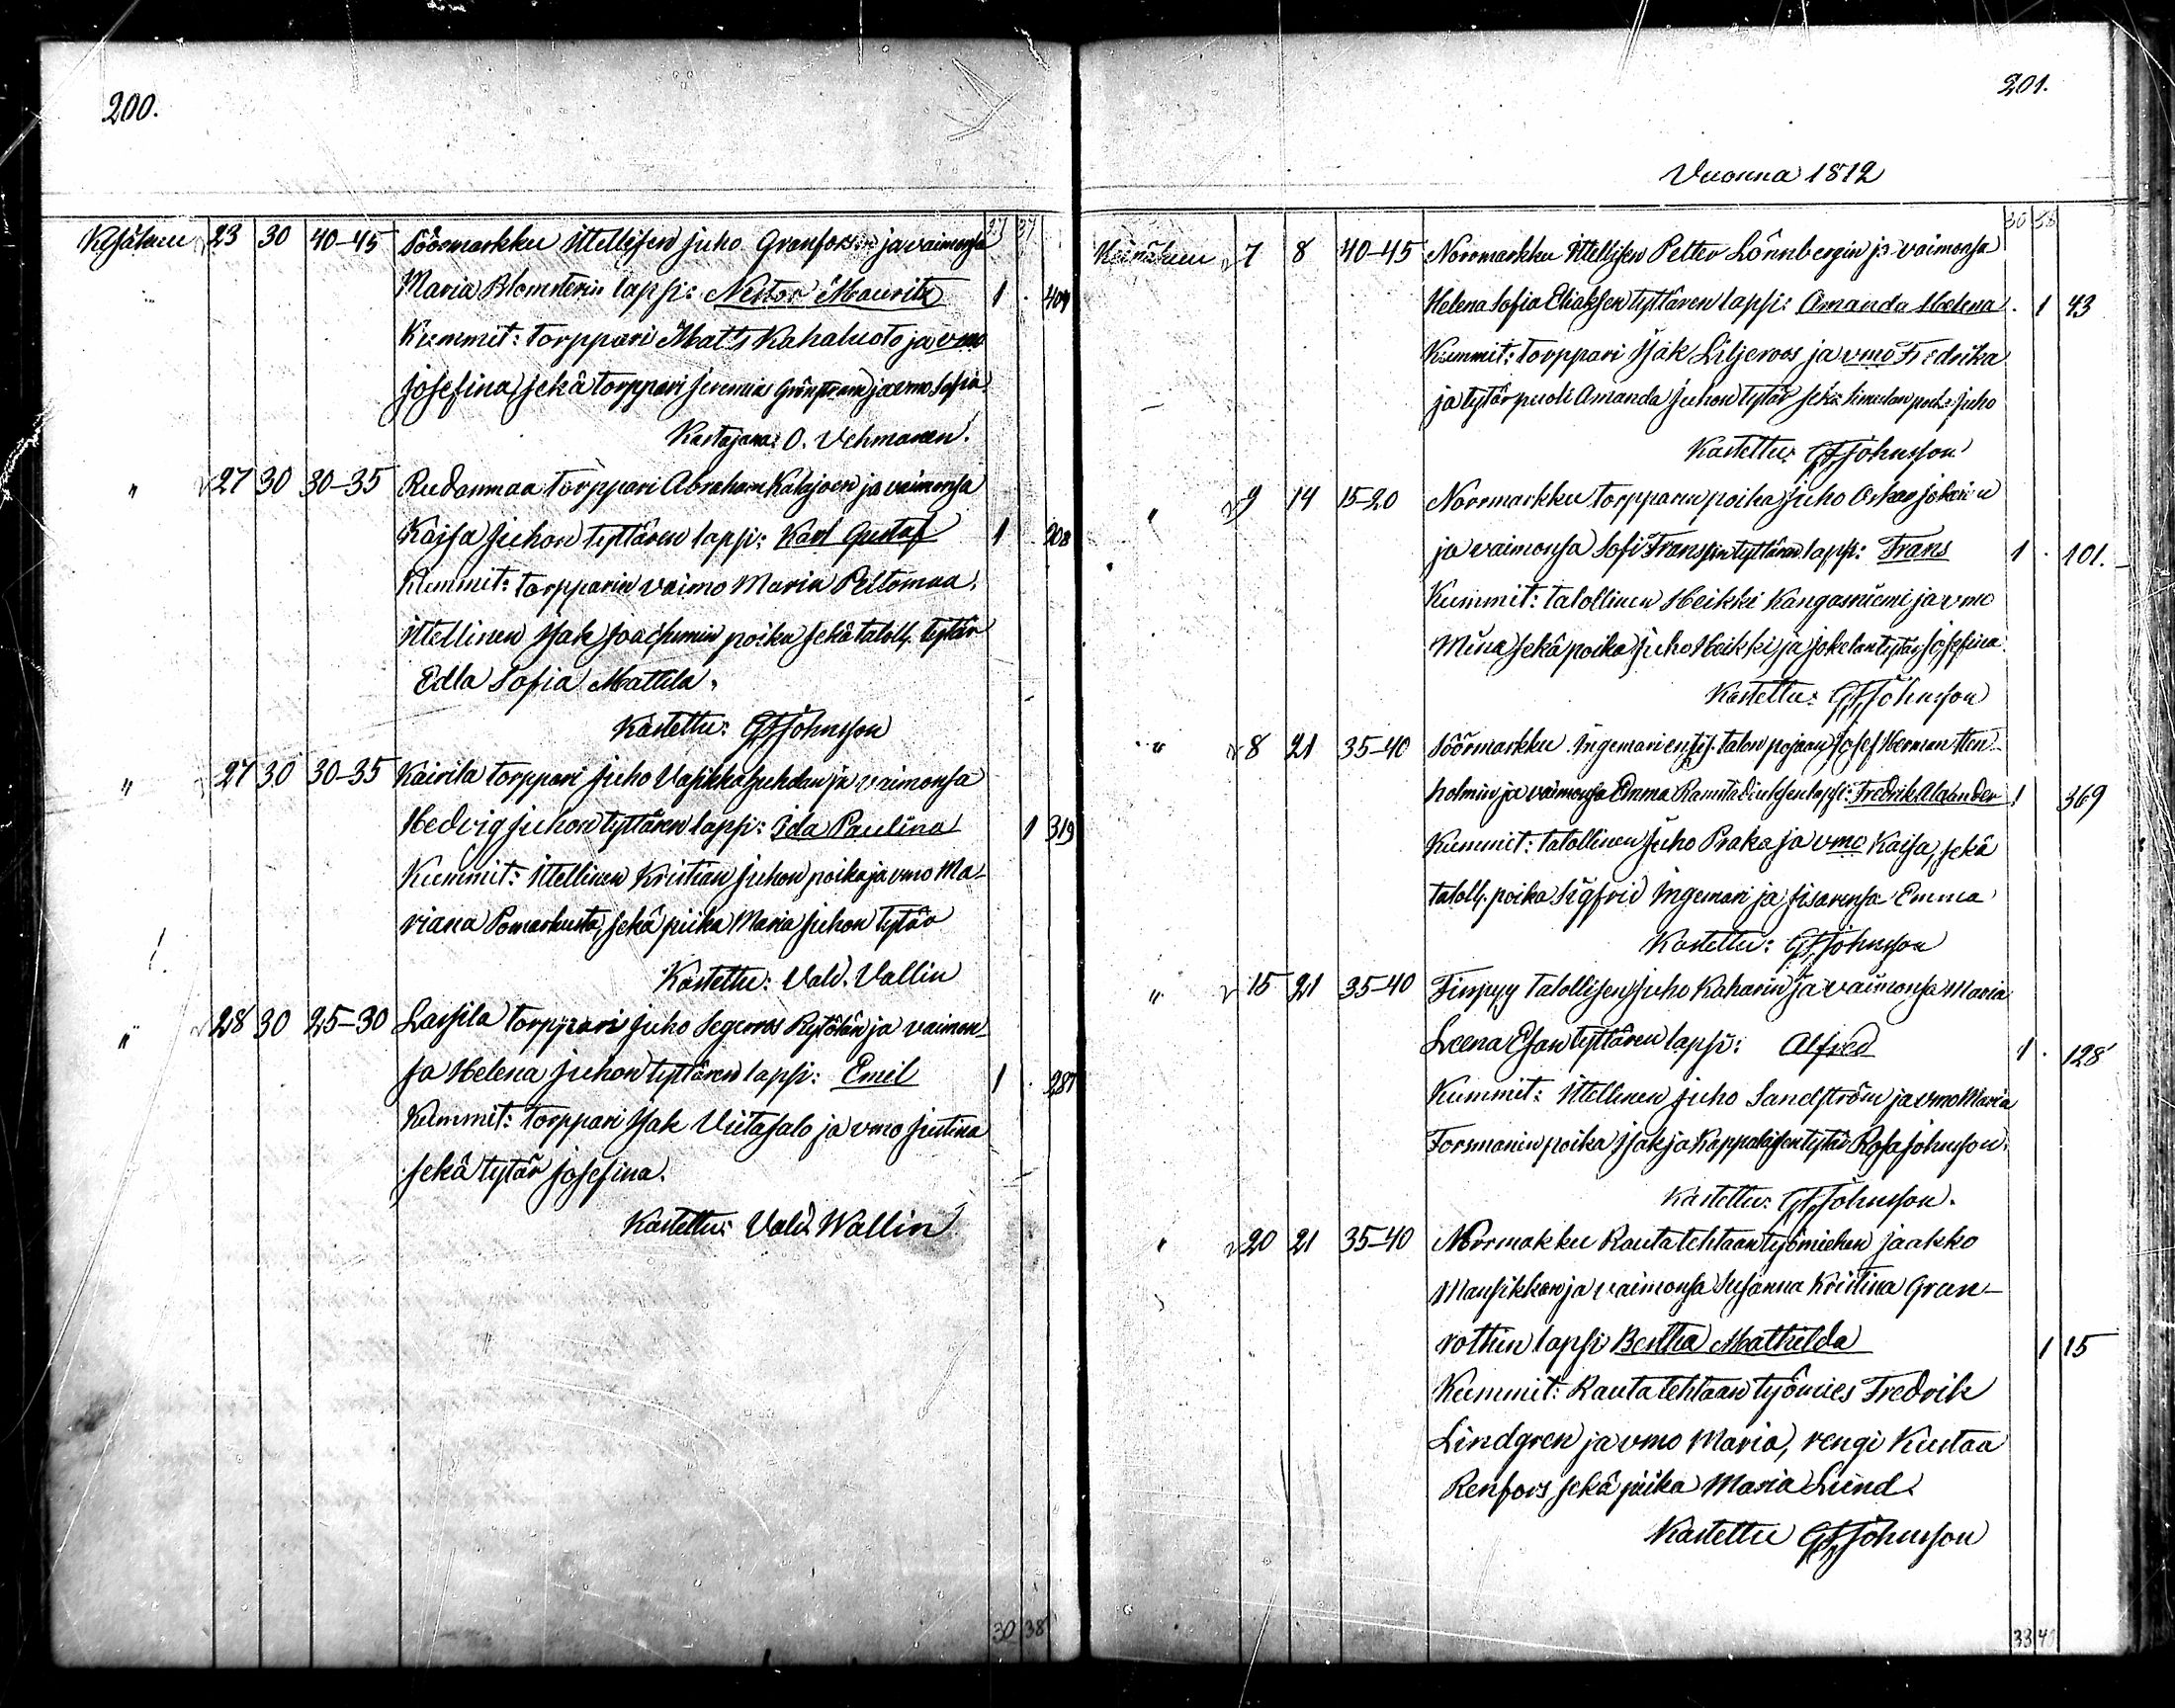 200.
27 37
Kesäkuu 23 30 40-45 Söörmarkku Ittellisen Juho Granforsin ja vaimonsa
Maria Blomsterin lapsi: Nestor Mauritz 1 . 409
Kummit: torppari Matts Kahaluoto ja vmo
Josefina, sekä torppari Jeremia Grönstrand ja vmo Sofia.
Kastajana: O. Vehmanen.
" 27 30 30-35 Rudanmaa torppari Abraham Kalajoen ja vaimonsa
Kaisa Juhon tyttären lapsi: Karl Gustaf 1 208
Kummit: torpparin vaimo Maria Peltomaa,
Ittellinen Isak Joachimin poika sekä taloll. tytär
Edla Sofia Mattila.
Kastettu: GF Johnsson
" 27 30 30-35 Kairila torppari Juho Vasikkajuhdan ja vaimonsa
Hedvig Juhon tyttären lapsi: Ida Paulina 1 319
Kummit: Ittellinen Kristian Juhon poika ja vmo Ma-
riana Pomarkusta, sekä piika Maria Juhon tytär
Kastettu: Vald. Vallin
" 28 30 25-30 Lassila torppari Juho Segerroos Rytölän ja vaimon-
sa Helena Juhon tyttären lapsi: Emil 1 . 287
Kummit: torppari Isak Viitasalo ja vmo Justina
sekä tytär Josefina.
Kastettu: Vald. Wallin
30 38
201.
Vuonna 1872
30 38
Heinäkuu 7 8 40-45 Norrmarkku Ittellisen Petter Lönnbergin ja vaimonsa
Helena Sofia Eliaksen tyttären lapsi: Amanda Helena . 1 43
Kummit: torppari Isak Liljeroos ja vmo Fredrika
ja tytärpuoli Amanda Juhon tytär sekä Juho
Kastettu: GF Johnsson
" 9 14 15-20 Norrmarkku torpparin poika Juho Oskar Jokelin
ja vaimonsa Sofi Franssin tyttären lapsi: Frans 1 . 101.
Kummit: talollinen Heikki Kangasniemi ja vmo
Miina sekä poika Juho Heikki, ja Jokelan tytär Josefina.
Kastettu: GF Johnsson
" 8 21 35-40 Söörmarkku Ingemari talon pojan Josef Herman Sten-
holmin ja vaimonsa Emma lapsi: Fredrik Alexander 1 369
Kummit: talollinen Juho Praka ja vmo Kaisa, sekä
taloll. poika Sigfrid Ingemari ja sisarensa Emma
Kastettu: GF Johnsson
" 15 21 35-40 Finpyy talollisen Juho Kaharin ja vaimonsa Maria
Leena Esan tyttären lapsi: Alfred 1 . 128
Kummit: Ittellinen Juho Sandström ja vmo Maria
Forsmanin poika Isak ja Kappalaisen tytär Rosa Johnsson.
Kastettu: GF Johnsson.
" 20 21 35-40 Norrmakku Rautatehtaan työmiehen Jaakko
Mansikkan ja vaimonsa Susanna Kristina Gran-
rothin lapsi Bertha Mathilda 1 15
Kummit: Rautatehtaan työmies Fredrik
Lindgren ja vmo Maria, rengi Kustaa
Renfors sekä piika Maria Lund.
Kastettu GF Johnsson
33 40